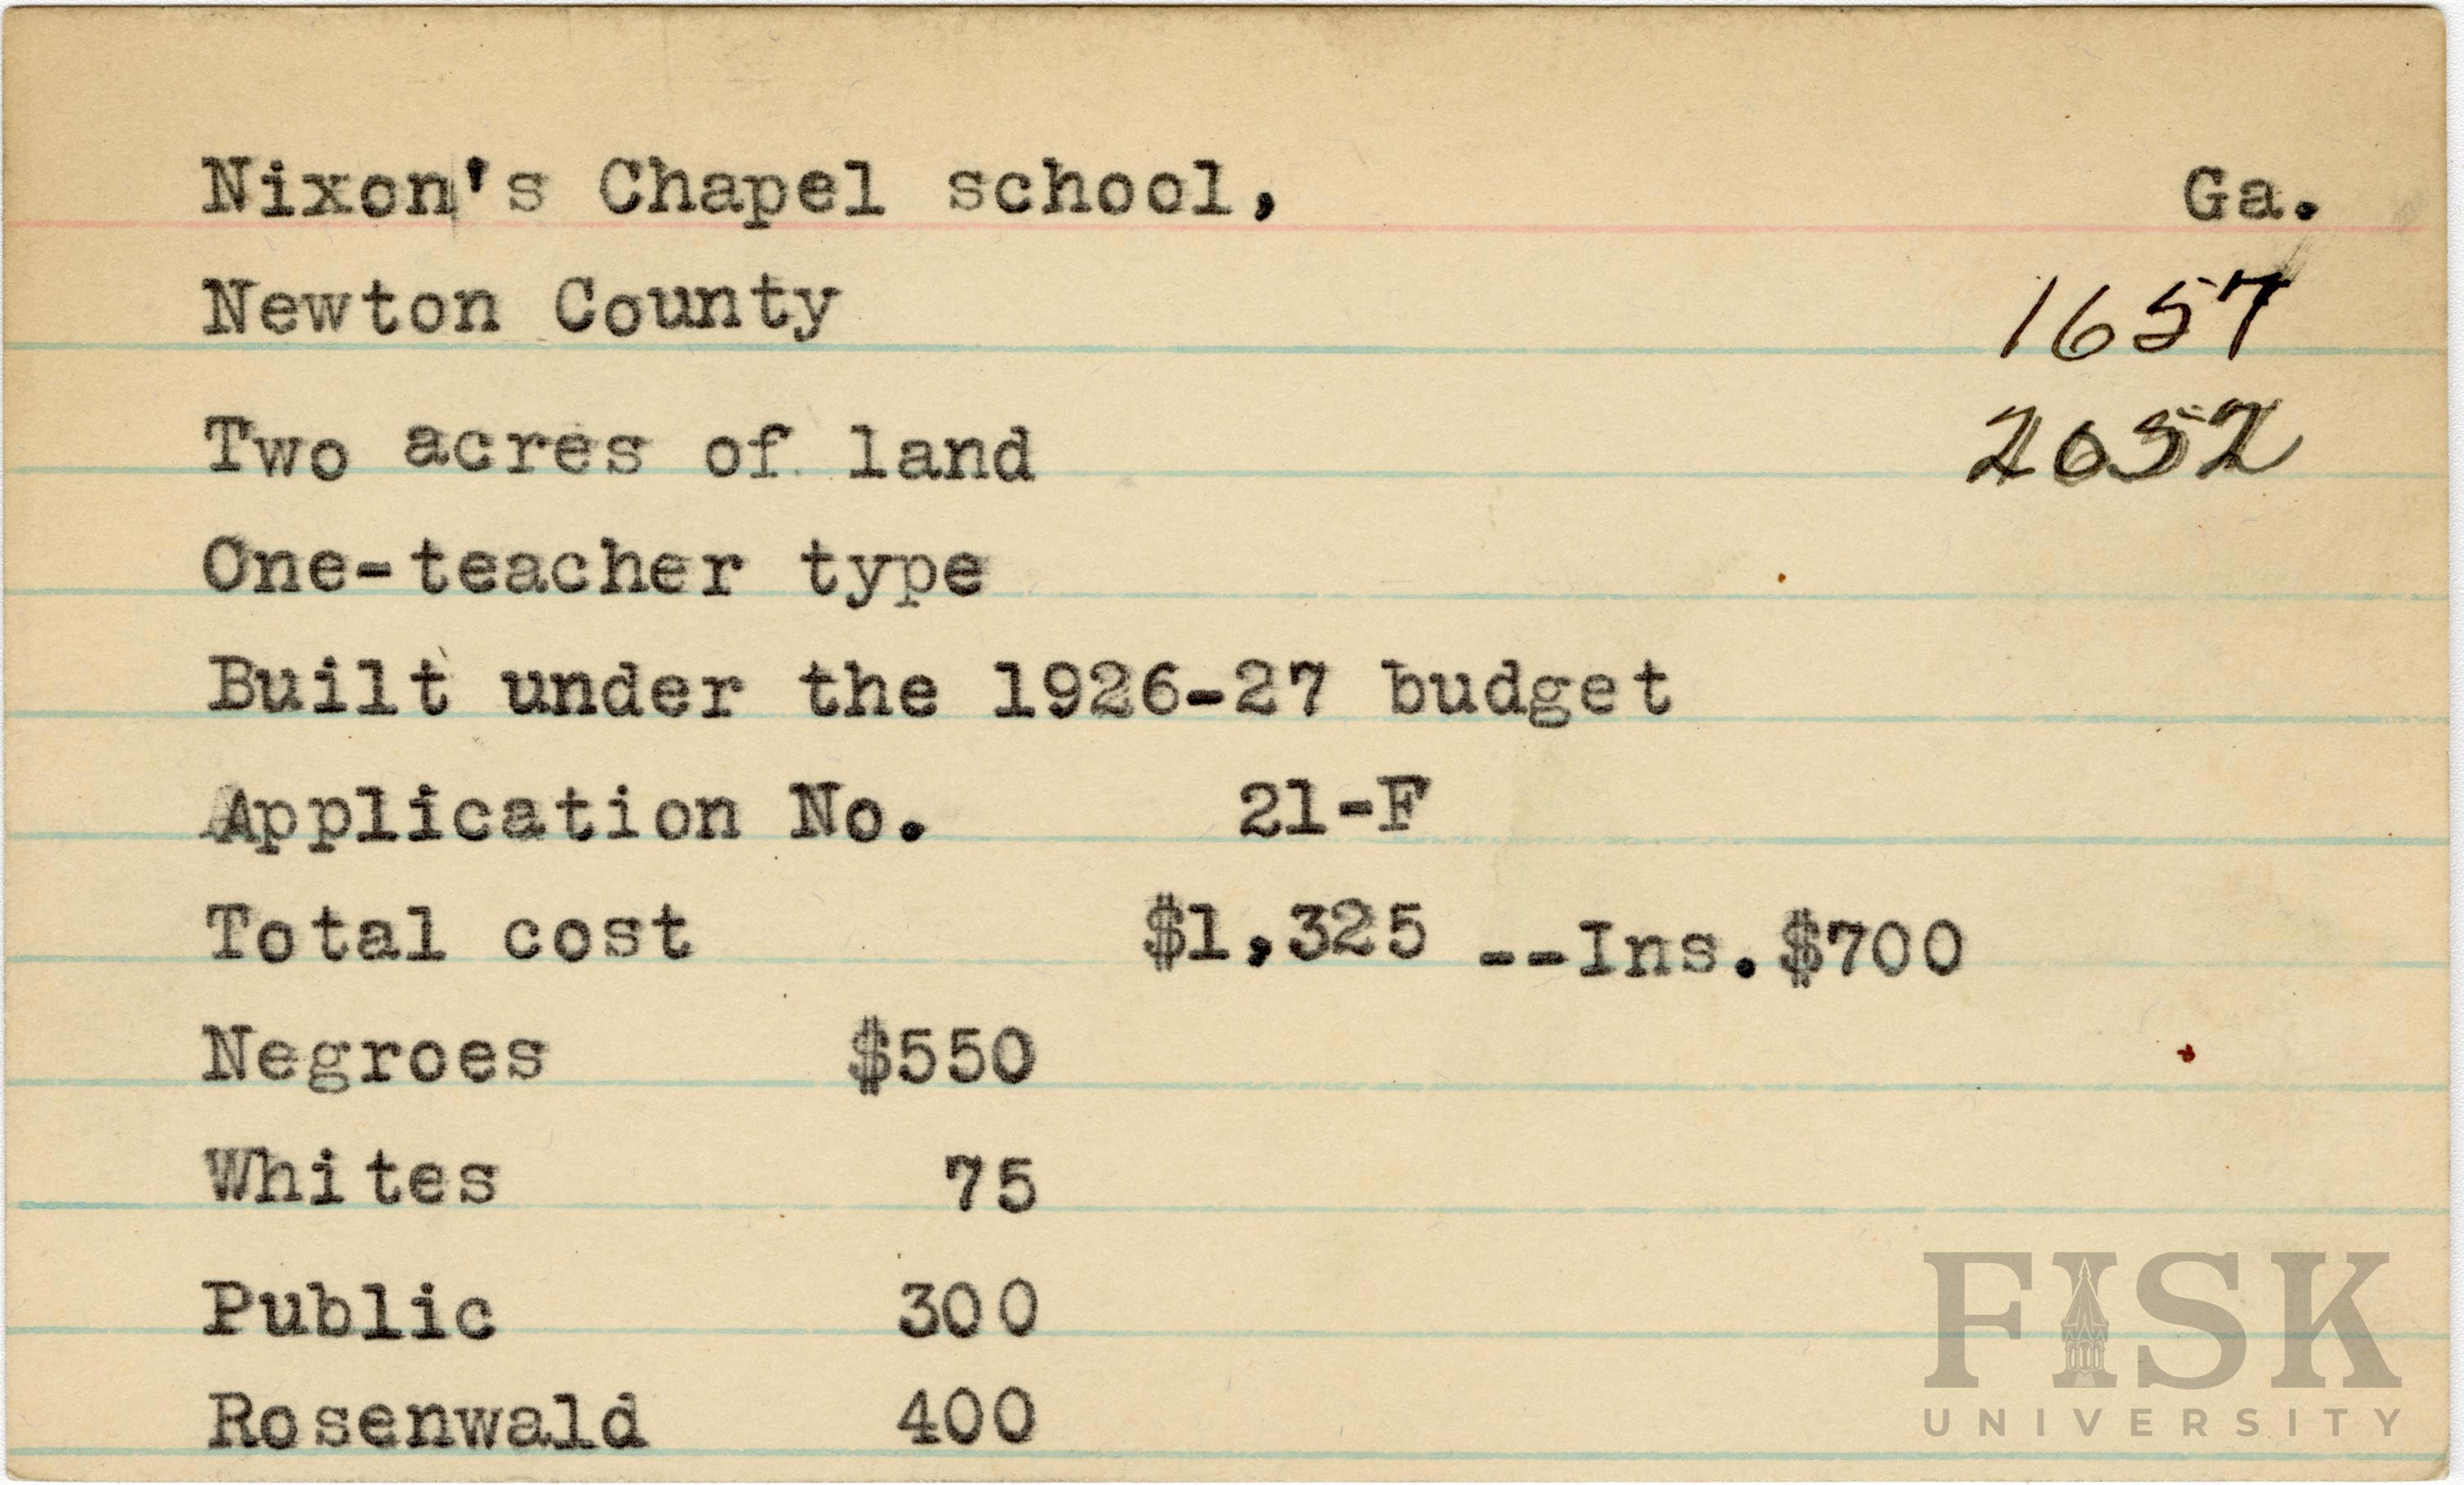 Nixon's Chapel school, Ga.
Newton County 1657
Two acres of land 2052
One-teacher type
Built under the 1926-27 budget
Application No. 21-F
Total cost $1,325 --Ins.$700
Negroes $550
Whites 75
Public 300
Rosenwald 400
FISK
UNIVERSITY